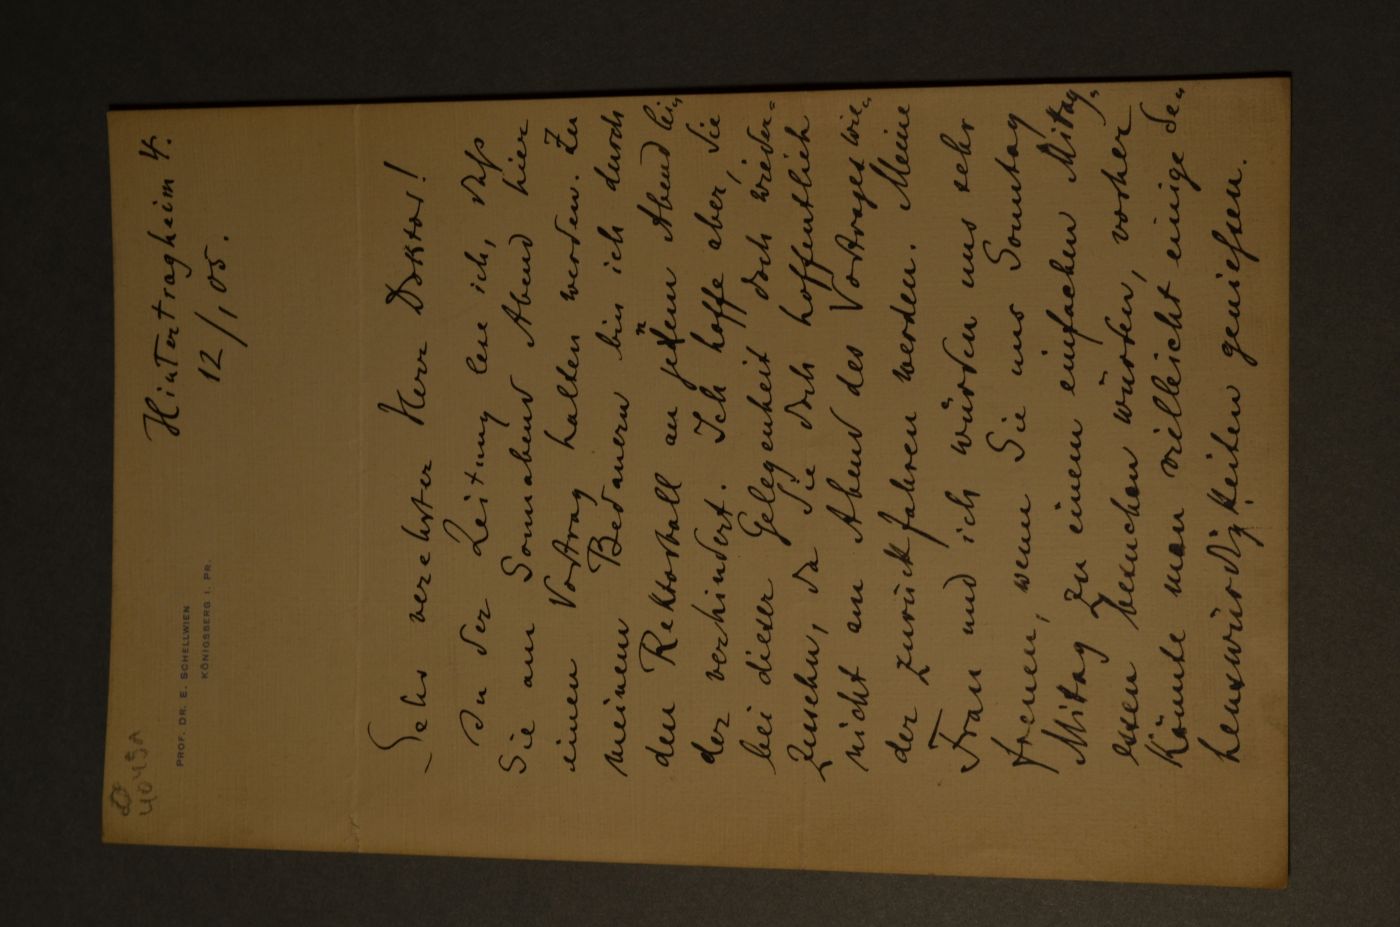 4048a
PROF. DR. E. SCHELLWIEN
KÖNIGSBERG I. PR.
Hintertragheim 4.
12/1, 05.
Sehr verehrter Herr Doktor!
In der Zeitung lese ich, daß
Sie am Sonnabend Abend hier
einen Vortrag halten werden. Zu
meinem Bedauern bin ich durch
den Rektorball an jenem Abend lei„
der verhindert. Ich hoffe aber, Sie
bei dieser Gelegenheit doch wieder=
zusehen, da Sie doch hoffentlich
nicht am Abend des Vortrages wie„
der zurückfahren werden. Meine
Frau und ich würden uns sehr
freuen, wenn Sie uns Sonntag
Mitag zu einem einfachen Mitag„
essen besuchen würden, vorher
könnte man villeicht einige Se„
henswürdigkeiten genießen.